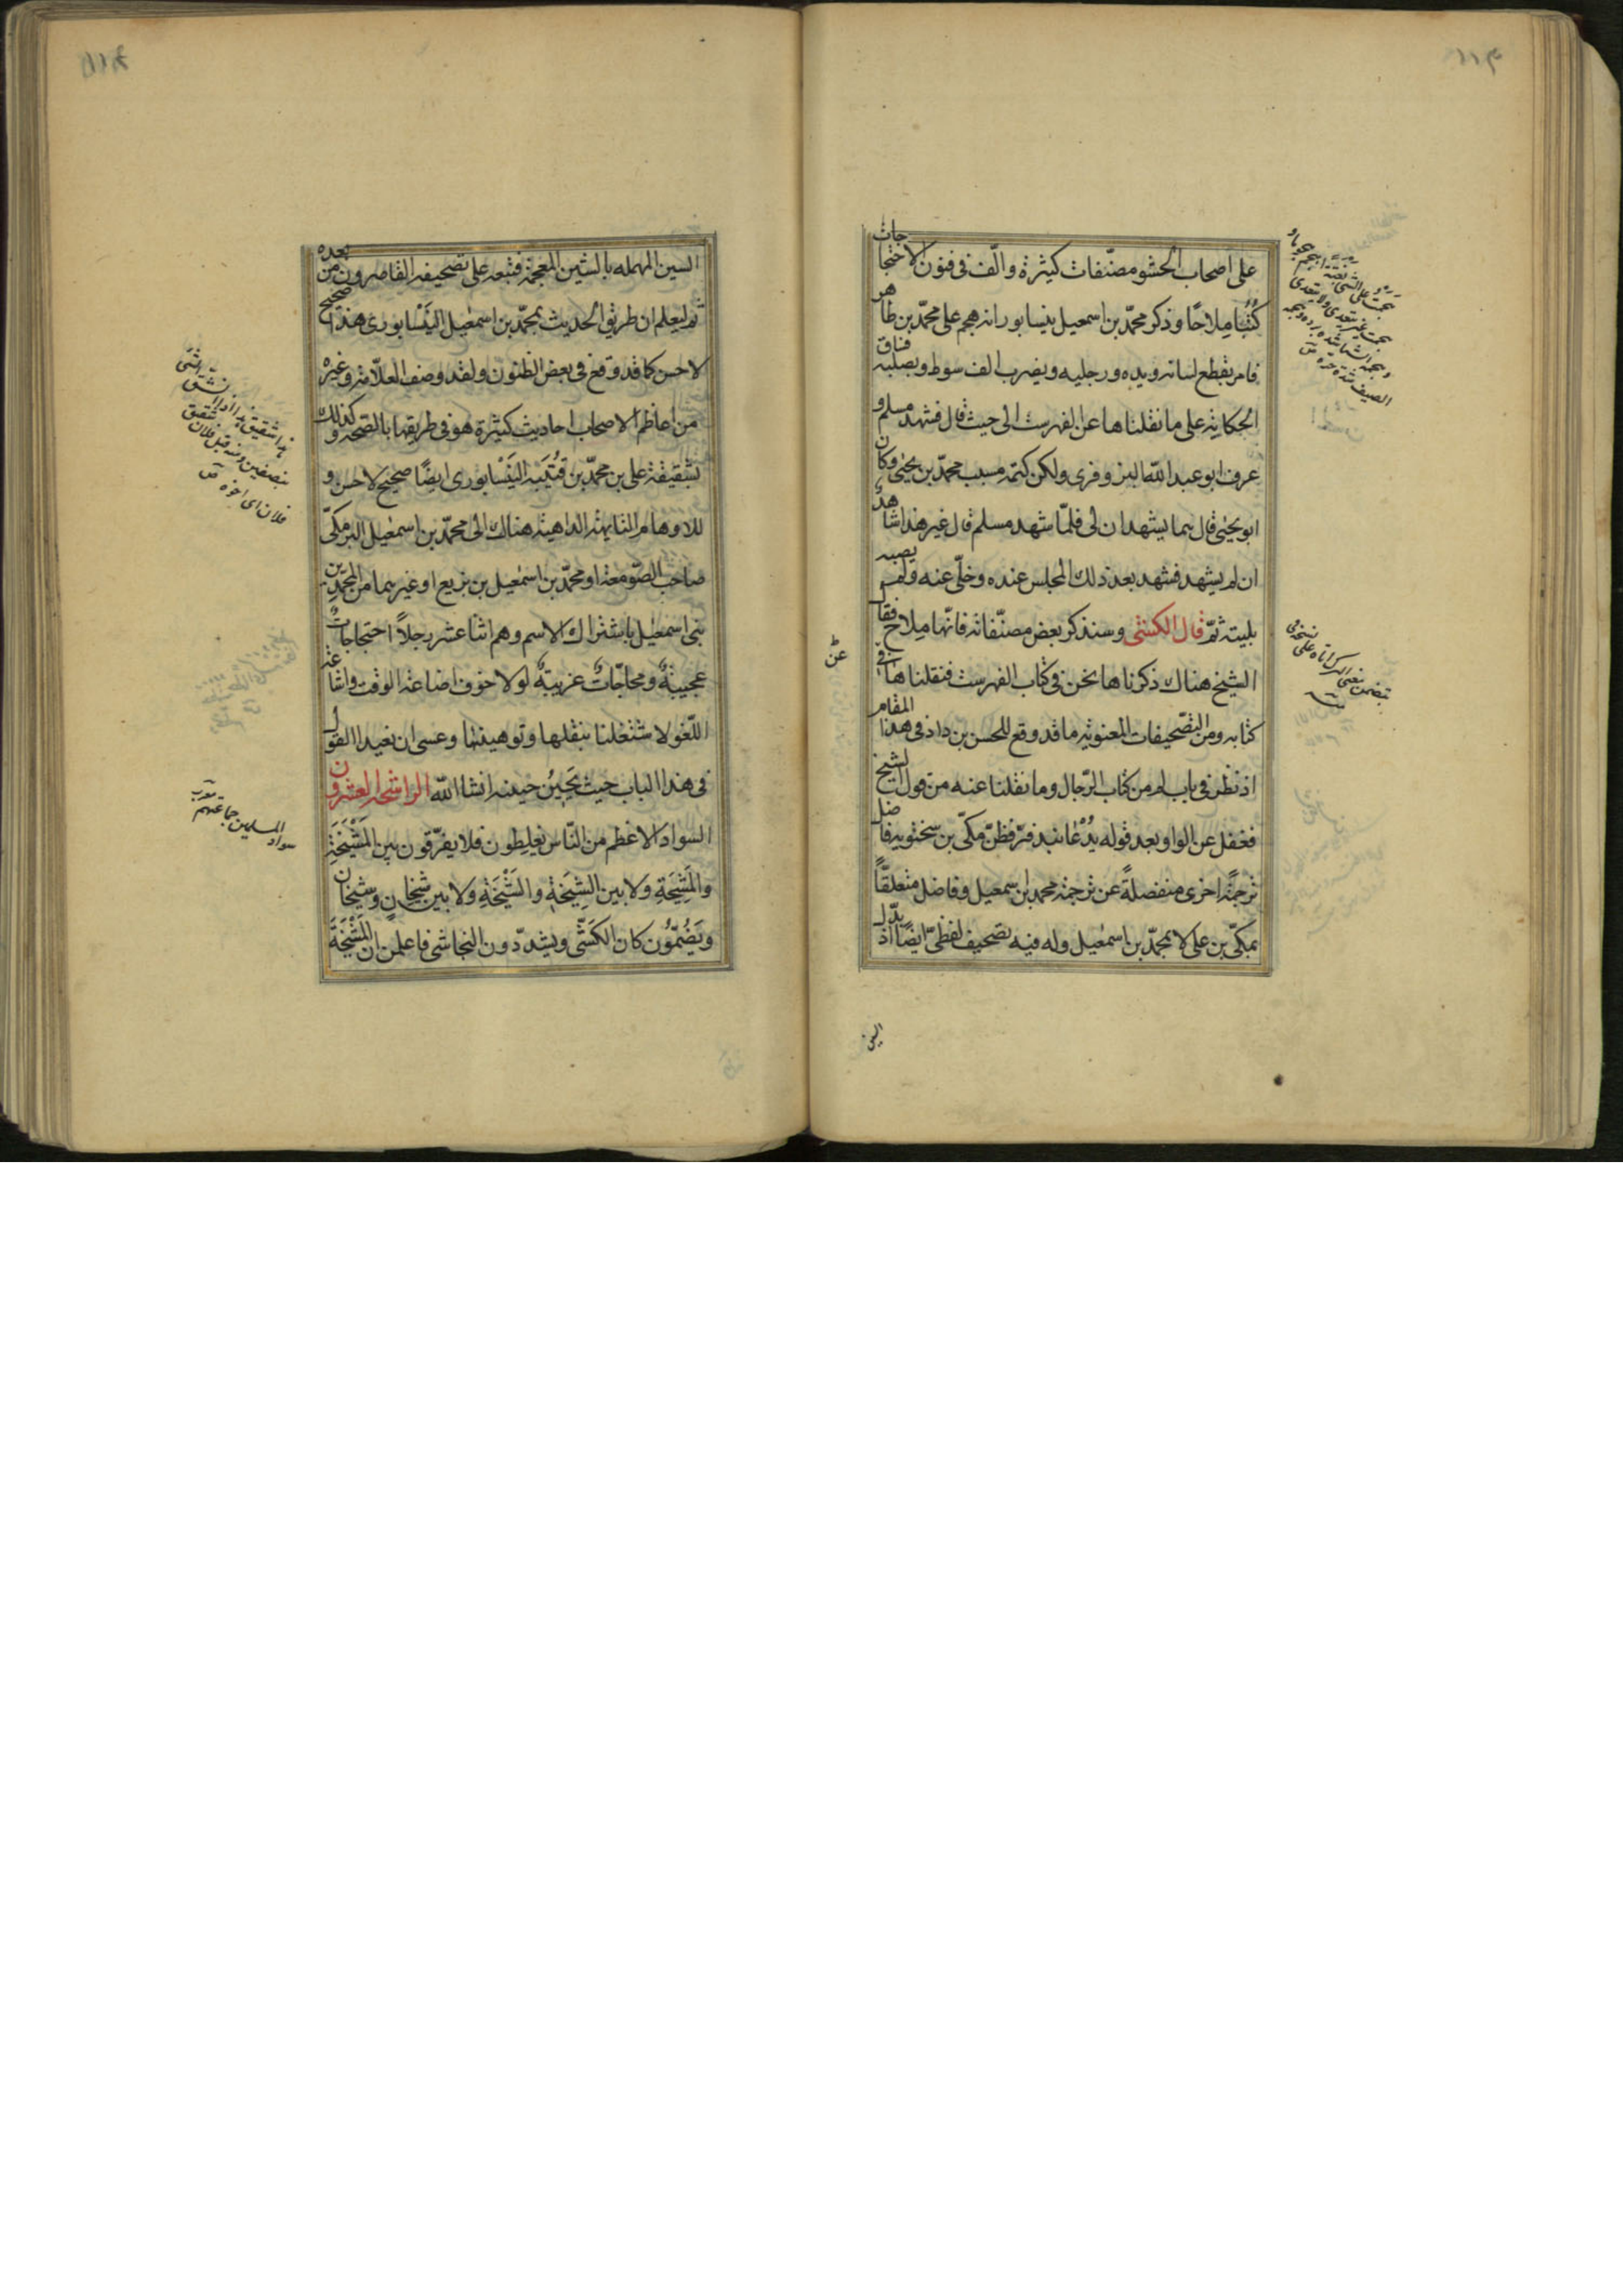 على اصحاب الحشو مصنّفات كثيرة والّف فى فنون الاحتجاجات
كُتُبًا مِلاحًا وذكر محمّد بن اسمعيل بنيسابور انه هجم على محمّد بن طاهر
فامر بقطع لسانه ويده ورجليه ويضرب الف سوط وبصلبه فساق
الحكاية على ما نقلناها عن الفهرست الى حيث قال فشهد مسلم و
عرف ابو عبد الله المروزى ولكن كتمه بسبب محمّد بن يحيى وكان
ابو يحيى قال بما يشهدان لى فلمّا شهد مسلم قال غير هذا شاهد
ان لم يشهد فشهد بعد ذلك المجلس عنده وخلّى عنه ولم يصبه
بليته ثمّ قال الكشى وسنذكر بعض مصنّفاته فانّها مِلاح فقال
الشيخ هناك ذكرناها نحن فى كتاب الفهرست فنقلناها فى
كتابه ومن التصحيفات المعنويّة ما قد وقع للحسن بن داود فى هذا المقام
اذ نظر فى باب لم من كتاب الرّجال وما نقلنا عنه من قول الشيخ
فغفل عن الواو بعد قوله يدعا بندفر فظنّ مكّى بن سختويه فاضل
ترجمة اخرى منفصلةً عن ترجمة محمد بن اسمعيل وفاضل متعلقًا
بمكّى بن على لا بمحمّد بن اسمعيل وله فيه تصحيف لفظىّ ايضًا اذ بدّل
السين
السين المهمله بالشين المعجمة فتبعه على تصحيفه القاصرون من بعده
ثم ليعلم ان طريق الحديث بمحمّد بن اسمعيل النَيْسابورى هذا صحيح
لا حسن كما قد وقع فى بعض الظنون ولقد وصف العلّامة وغيره
من اعاظم الاصحاب احاديث كثيرة هو فى طريقها بالصّحّة وكذلك
شقيقه على بن محمّد بن قُتَيْبَة النَيْسابورى ايضًا صحيح لا حسن و
للاوهام التايهة الذاهبة هنالك الى محمّد بن اسمعيل البرمكىّ
صاحب الصّومعة او محمّد بن اسمعيل بن بزيع او غيرهما من المحمّدين
بنى اسمعيل باشتراك الاسم وهم اثنا عشر رجلاً احتجاجاتٌ
عجيبةٌ ومحاجّاتٌ غريبةٌ لولا خوف اضاعة الوقت واشاعة
اللّغو لاشتغلنا بنقلها وتوهينها وعسى ان نعيد القول
فى هذا الباب حيث يَحِينُ حينه انشا الله الراشحة العشرون
السواد الاعظم من النّاس يغلطون فلا يفرّقون بين المَشْيَخَةِ
والمَشِيخَةِ ولا بين الشِيخَةِ والشَيْخَةِ ولا بين شيخانٍ وشيخان
ويَضُمّوُن كان الكَشّى ويشدّدون النجاشى فاعلمن ان المَشْيَخَةَ
سواد المسلمين جماعتهم